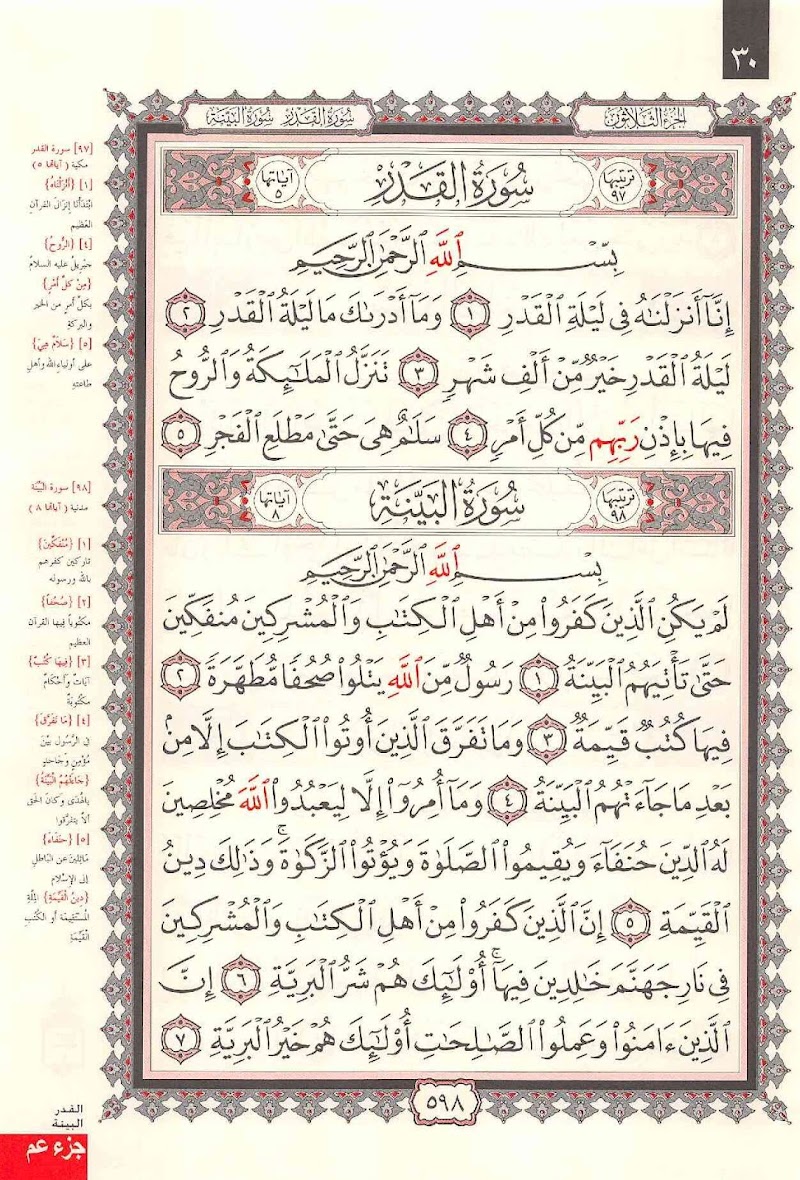 ٣٠
الجزء الثلاثون
سورة القدر سورة البينة
ترتيبها ٩٧
سُورَةُ القَدْرِ
آياتها ٥
بِسْمِ اللَّهِ الرَّحْمَٰنِ الرَّحِيمِ
إِنَّآ أَنزَلْنَٰهُ فِى لَيْلَةِ ٱلْقَدْرِ ١ وَمَآ أَدْرَىٰكَ مَا لَيْلَةُ ٱلْقَدْرِ ٢
لَيْلَةُ ٱلْقَدْرِ خَيْرٌ مِّنْ أَلْفِ شَهْرٍ ٣ تَنَزَّلُ ٱلْمَلَٰٓئِكَةُ وَٱلرُّوحُ
فِيهَا بِإِذْنِ رَبِّهِم مِّن كُلِّ أَمْرٍ ٤ سَلَٰمٌ هِىَ حَتَّىٰ مَطْلَعِ ٱلْفَجْرِ ٥
ترتيبها ٩٨
سُورَةُ البَيِّنَةِ
آياتها ٨
بِسْمِ اللَّهِ الرَّحْمَٰنِ الرَّحِيمِ
لَمْ يَكُنِ ٱلَّذِينَ كَفَرُوا۟ مِنْ أَهْلِ ٱلْكِتَٰبِ وَٱلْمُشْرِكِينَ مُنفَكِّينَ
حَتَّىٰ تَأْتِيَهُمُ ٱلْبَيِّنَةُ ١ رَسُولٌ مِّنَ ٱللَّهِ يَتْلُوا۟ صُحُفًا مُّطَهَّرَةً ٢
فِيهَا كُتُبٌ قَيِّمَةٌ ٣ وَمَا تَفَرَّقَ ٱلَّذِينَ أُوتُوا۟ ٱلْكِتَٰبَ إِلَّا مِنۢ
بَعْدِ مَا جَآءَتْهُمُ ٱلْبَيِّنَةُ ٤ وَمَآ أُمِرُوٓا۟ إِلَّا لِيَعْبُدُوا۟ ٱللَّهَ مُخْلِصِينَ
لَهُ ٱلدِّينَ حُنَفَآءَ وَيُقِيمُوا۟ ٱلصَّلَوٰةَ وَيُؤْتُوا۟ ٱلزَّكَوٰةَ ۚ وَذَٰلِكَ دِينُ
ٱلْقَيِّمَةِ ٥ إِنَّ ٱلَّذِينَ كَفَرُوا۟ مِنْ أَهْلِ ٱلْكِتَٰبِ وَٱلْمُشْرِكِينَ
فِى نَارِ جَهَنَّمَ خَٰلِدِينَ فِيهَآ ۚ أُو۟لَٰٓئِكَ هُمْ شَرُّ ٱلْبَرِيَّةِ ٦ إِنَّ
ٱلَّذِينَ ءَامَنُوا۟ وَعَمِلُوا۟ ٱلصَّٰلِحَٰتِ أُو۟لَٰٓئِكَ هُمْ خَيْرُ ٱلْبَرِيَّةِ ٧
٥٩٨
[٩٧] سورة القدر
مكية (آياتها ٥)
[١] {أَنْزَلْنَاهُ}
ابْتَدَأْنَا إنزالَ القرآنِ
العظيم
[٤] {الرُّوحُ}
جبريلُ عليه السلامُ
{مِنْ كُلِّ أَمْرٍ}
بكلِّ أمرٍ من الخيرِ
والبركةِ
[٥] {سَلَامٌ هِيَ}
على أولياءِ الله وأهلِ
طاعتهِ
[٩٨] سورة البيّنة
مدنية (آياتها ٨)
[١] {مُنْفَكِّينَ}
تاركين كفرهم
بالله ورسوله
[٢] {صُحُفاً}
مكتوباً فيها القرآن
العظيم
[٣] {فِيهَا كُتُبٌ}
آيَاتٌ وَأَحْكَامٌ
مكتُوبَةٌ
[٤] {مَا تَفَرَّقَ}
في الرَّسُول بَيْنَ
مُؤْمِنٍ وَجَاحِدٍ
{جَاءَتْهُمُ الْبَيِّنَةُ}
بالهُدَى وكانَ الحقّ
ألا يتفَرَّقوا
[٥] {حُنَفَاءَ}
مَائِلِينَ عن البَاطلِ
إلى الإسْلامِ
{دِينُ الْقَيِّمَةِ} المِلَّةِ
المُسْتَقِيمَة أو الكُتُبِ
القَيِّمَةِ
القدر
البينة
جزء عم